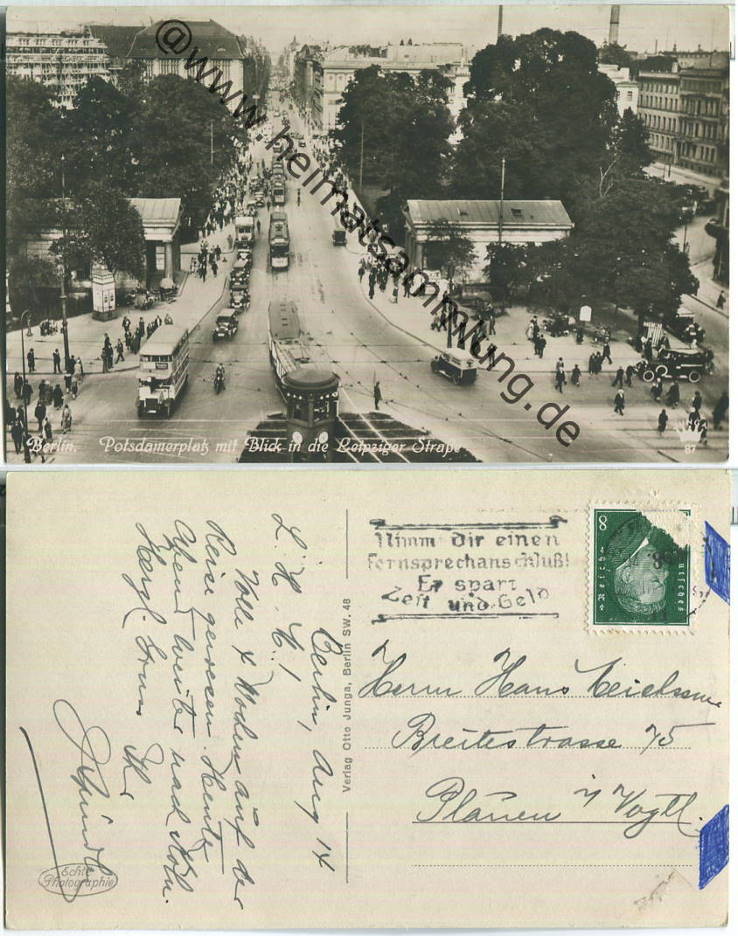 @www.heimatsammlung.de
Berlin. Potsdamerplatz mit Blick in die Leipziger Straße
87
Nimm dir einen
Fernsprechanschluß!
Er spart
Zeit und Geld
8
Reich
Verlag Otto Junga, Berlin SW. 48
Berlin, Aug 14
L. H. M.!
Volle 4 Wochen auf der
Reise gewesen. Heute
Abend weiter nach Köln.
Herzl. Grus Ihr
Herrn Hans
Breitestrasse 75
Plauen i/ Vogtl.
Echte
Photographie